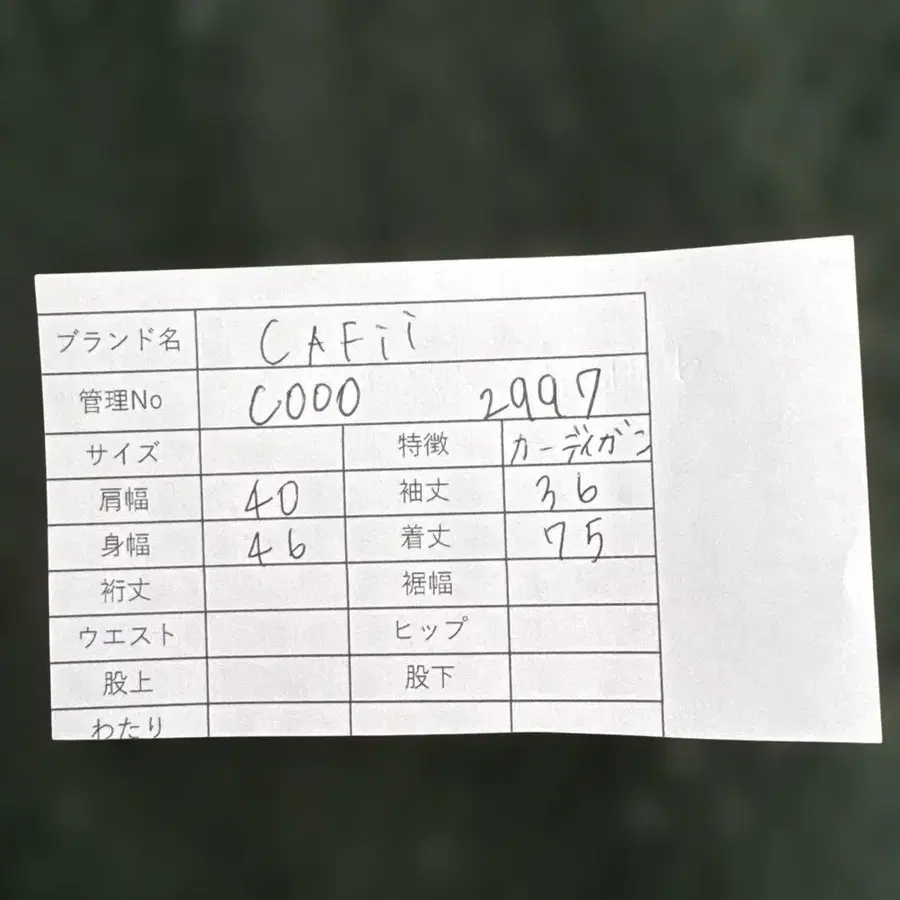 ブランド名 CAFii
管理No C000 2997
サイズ 特徴 カーディガン
肩幅 40 袖丈 36
身幅 46 着丈 75
裄丈 裾幅
ウエスト ヒップ
股上 股下
わたり